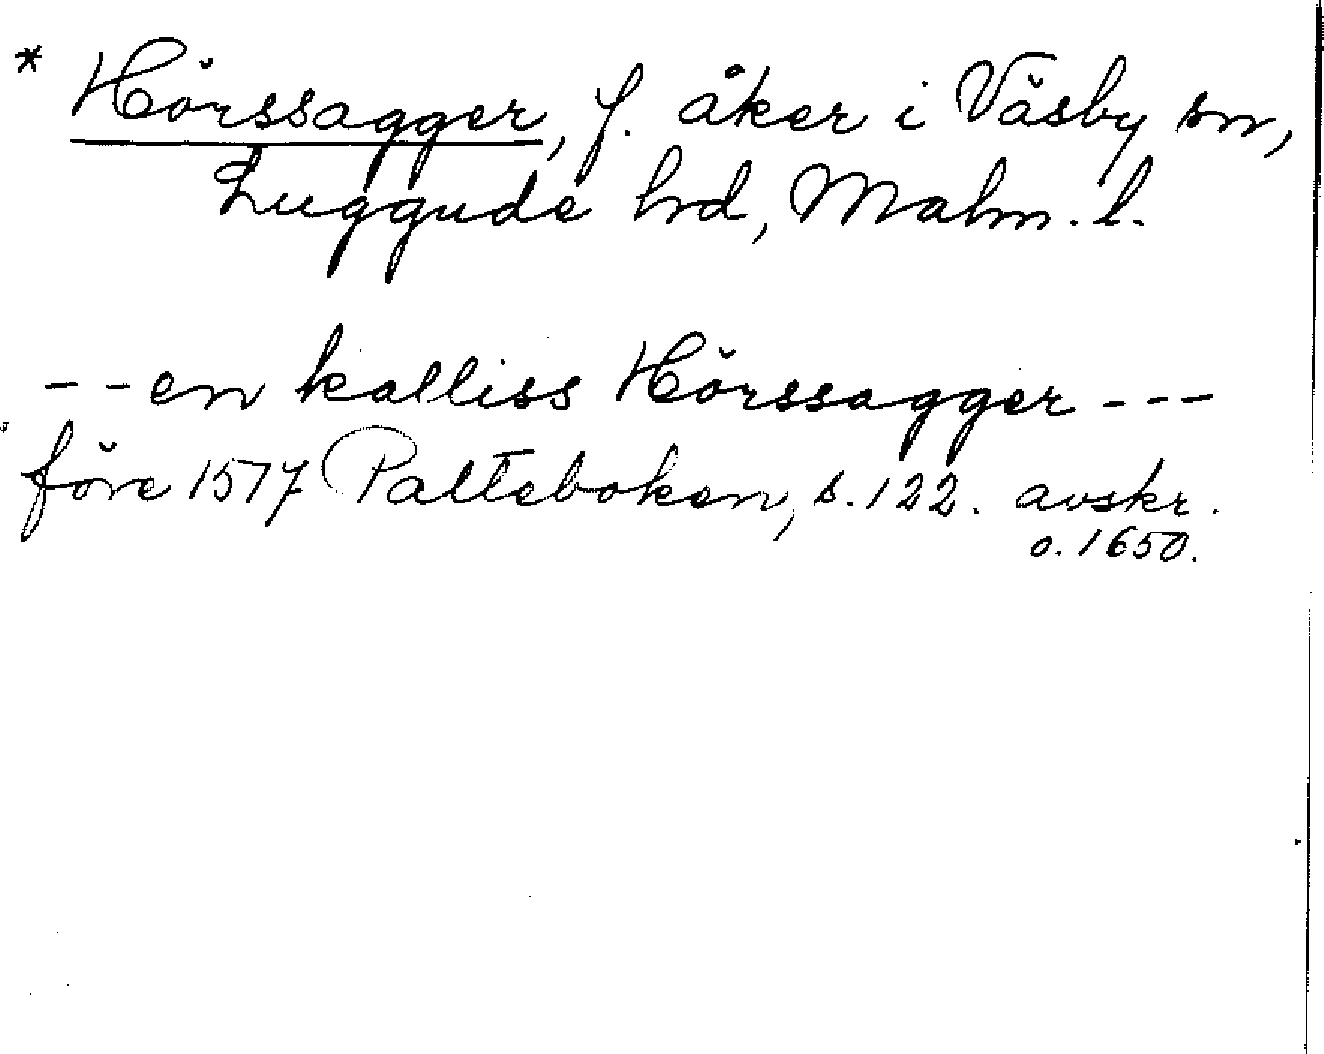 * Hörssagger, f. åker i Väsby sn,
Luggude hd, Malm. l.
- - en kalliss Hörssagger - - -
före 1517 Palteboken, s. 122. avskr.
o. 1650.